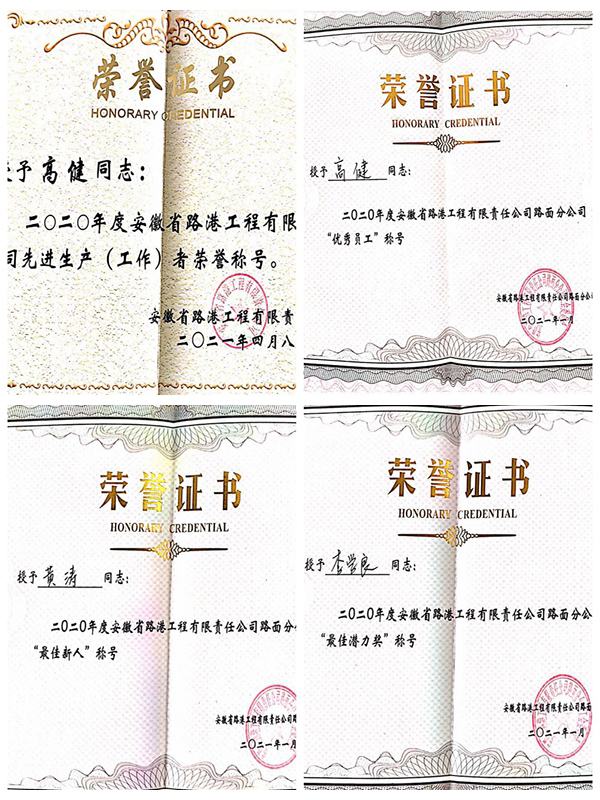 荣誉证书
HONORARY CREDENTIAL
授予高健同志:
二〇二〇年度安徽省路港工程有限
司先进生产(工作)者荣誉称号。
安徽省路港工程有限责
二〇二一年四月八
荣誉证书
HONORARY CREDENTIAL
授予 高健 同志:
二〇二〇年度安徽省路港工程有限责任公司路面分公司
“优秀员工”称号
安徽省路港工程有限责任公司路面分公
二〇二一年一月
荣誉证书
HONORARY CREDENTIAL
授予 黄涛 同志:
二〇二〇年度安徽省路港工程有限责任公司路面分公
“最佳新人”称号
安徽省路港工程有限责任公司路
二〇二一年一月
荣誉证书
HONORARY CREDENTIAL
授予 李学良 同志:
二〇二〇年度安徽省路港工程有限责任公司路面分公
“最佳潜力奖”称号
安徽省路港工程有限责任公司路面
二〇二一年一月